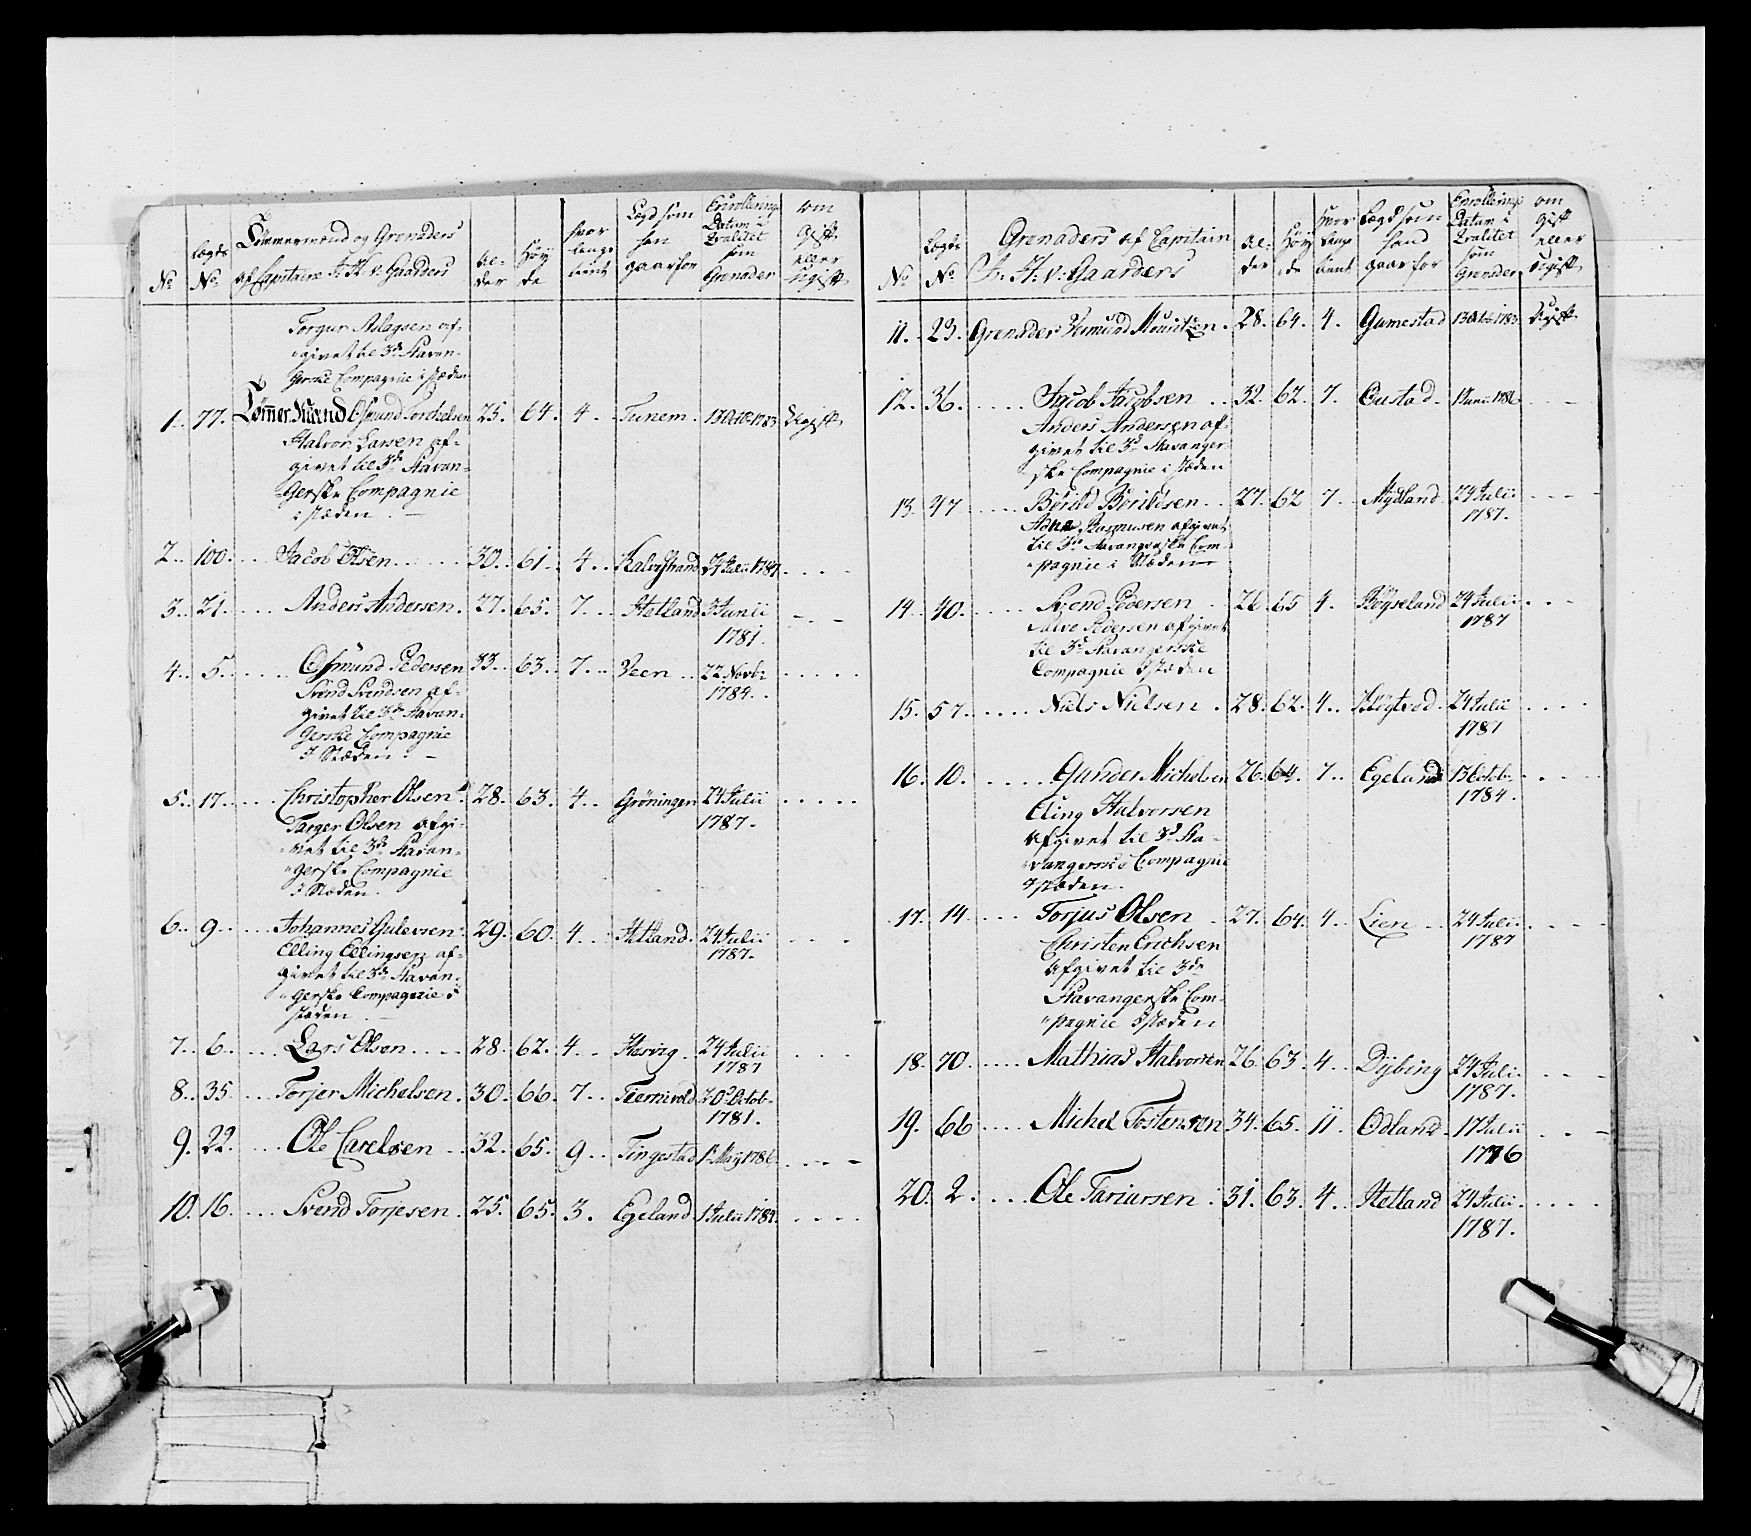 No. Lægds No. Tömmermænd og Grenaders af Capitaine F. H. v: Gaarders Al-der Höy-de hvor lenge tient Lægd som han gaar for Enrollerings Datum i Qvalitet som Grenader om Gift eller Ugift
Torgur Aslagsen af-
givet til 3de Stavan-
gerske Compagnie i stæden
1. 77. Tömmer Mand Osmund Torchelsen 25. 64. 4. Tunem. 13 Octb 1783 Ugift
Halvor Larsen af-
givet til 3de Stavan-
gerske Compagnie
i stæden.
2. 100. Jacob Olsen 30. 61. 4. Kalvestrand 24 Julii 1787
3. 21. Anders Andersen. 27. 65. 7. Hetland 3 Junii
1781.
4. 5. Osmund Pedersen 33. 63. 7. Veen 22 Novbr
1784.
Svend Svendsen af-
givet til 3de Stavan-
gerske Compagnie
I Stæden.
5. 17. Christopher Olsen 28. 63. 4. Gröningen 24 Julii
1787.
Targer Olsen afgi-
vet til 3de Stavan-
gerske Compagnie
I Stæden.
6. 9. Johannes Gulevsen 29. 60. 4. Hetland. 24 Julii
1787.
Elling Ellingsen af-
givet til 3de Stavan-
gerske Compagnie i
stæden
7. 6. Lars Olsen 28. 62. 4. Hesvig. 24 Julii
1787
8. 35. Torjer Michelsen. 30. 66. 7. Tiernivold 20de Octob.
1781.
9. 22. Ole Carelsen 32. 65. 9. Tingestad 1 Maij 1786
10. 16. Svend Torjesen. 25. 65. 3. Egeland 1 Julii 1784.
No. Lægds No. Grenaders af Capitain Fr. H: v: Gaarders Al-der Höy-de hvor lenge tient Lægd som hand gaar for Enrollerings Datum i Qvalitet som Grenader om Gift eller Ugift
11. 23. Grenader Vemund Mouritzen. 28. 64. 4. Gumestad 13 Octb 1783 Ugift
12. 36. Jacob Jacobsen 32. 62. 7. Oustad. 1 Junii 1786
Anders Andersen af-
givet til 3de Stavanger-
ske Compagnie i stæden
13. 47. Börild Börildsen 27. 62 7. Mydland 24 Julii
1787.
Adne Rasmusen afgivet
til 3de Stavangerske Com-
pagnie i Stæden
14. 40. Svend Pedersen 26. 65 4. Röyseland 24 Julii
1787
Salve Pedersen afgivet
til 3de Stavangerske
Compagnie I stæden
15. 57. Niels Nielsen. 28. 62. 4. Klögtved. 24 Julii
1787
16. 10. Gunder Michelsen 26. 64. 7. Egeland 13 Octob.
1784.
Eling Halvorsen
afgivet til 3de Sta-
vangerske Compagnie
I stæden.
17. 14. Torjus Olsen 27. 64. 4. Lien 24 Julii
1787
Christen Erichsen
afgivet til 3de
Stavangerske Com-
pagnie I stæden
18. 70. Mathias Halvorsen 26. 63. 4. Dybing 24 Julii
1787.
19. 66 Michel Tostensen 34. 65. 11. Odland. 17 Julii
1776
20. 2. Ole Tariursen 31. 63. 4. Hetland 24 Julii
1787.